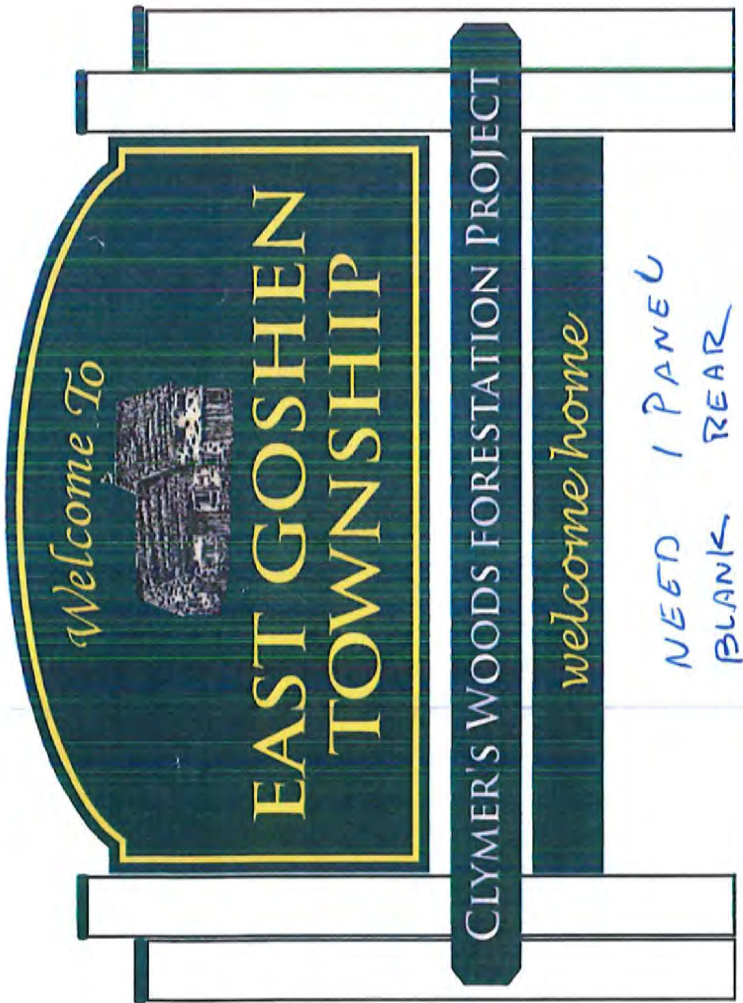 Welcome To
EAST GOSHEN
TOWNSHIP
CLYMER'S WOODS FORESTATION PROJECT
welcome home
NEED 1 PANEL
BLANK REAR